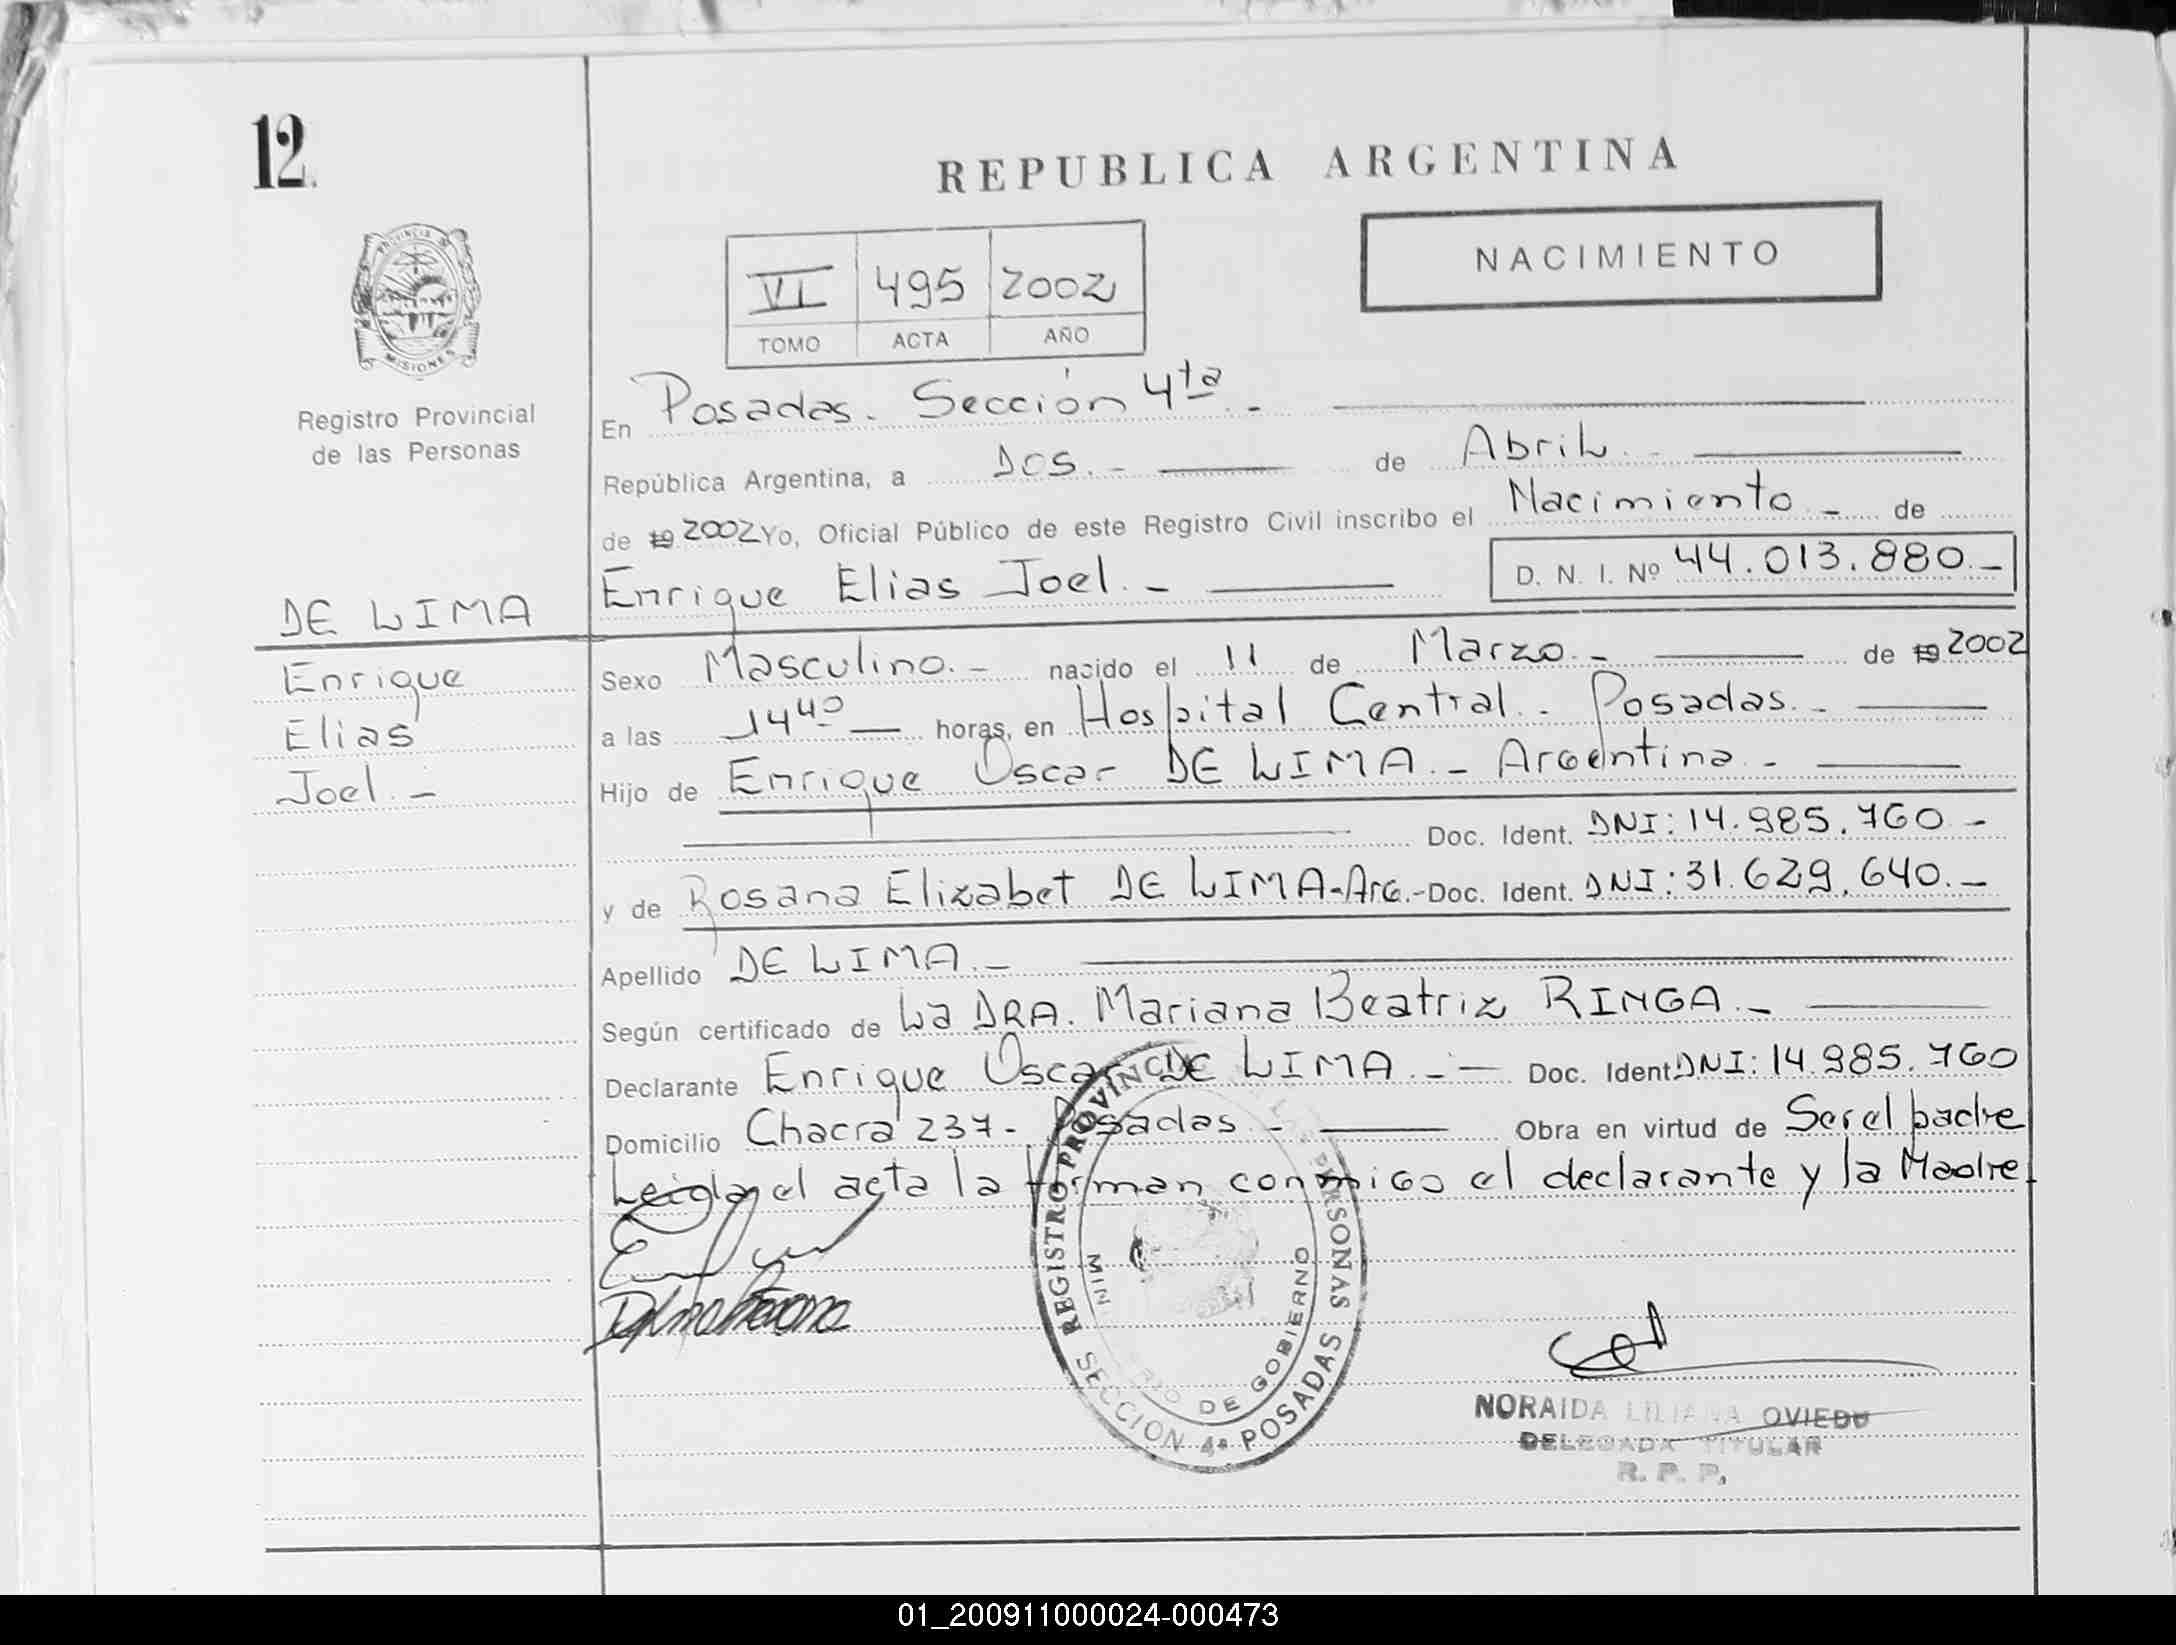 12.
REPUBLICA ARGENTINA
NACIMIENTO
VI 495 2002
TOMO ACTA AÑO
PROVINCIA DE
MISIONES
Registro Provincial
de las Personas
En Posadas. Sección 4ta. -
República Argentina, a Dos. - de Abril. -
de 19 2002 Yo, Oficial Público de este Registro Civil inscribo el Nacimiento - de
Enrique Elias Joel. - D. N. I. Nº 44.013.880. -
DE LIMA
Enrique
Elias
Joel. -
Sexo Masculino. - nacido el 11 de Marzo. - de 19 2002
a las 14 40 horas, en Hospital Central. - Posadas. -
Hijo de Enrique Oscar DE LIMA. - Argentina. -
Doc. Ident. DNI: 14.985.760 -
y de Rosana Elizabet DE LIMA - Arg. - Doc. Ident. DNI: 31.629.640. -
Apellido DE LIMA. -
Según certificado de La DRA. Mariana Beatriz RINGA. -
Declarante Enrique Oscar DE LIMA. - Doc. Ident DNI: 14.985.760
Domicilio Chacra 237 - Posadas. - Obra en virtud de Ser el padre
Leida el acta la forman conmigo el declarante y la Madre
REGISTRO PROVINCIAL DE LAS PERSONAS
MINISTERIO DE GOBIERNO
SECCION 4ª POSADAS
NORAIDA LILIANA OVIEDO
DELEGADA TITULAR
R. P. P.
01_200911000024-000473